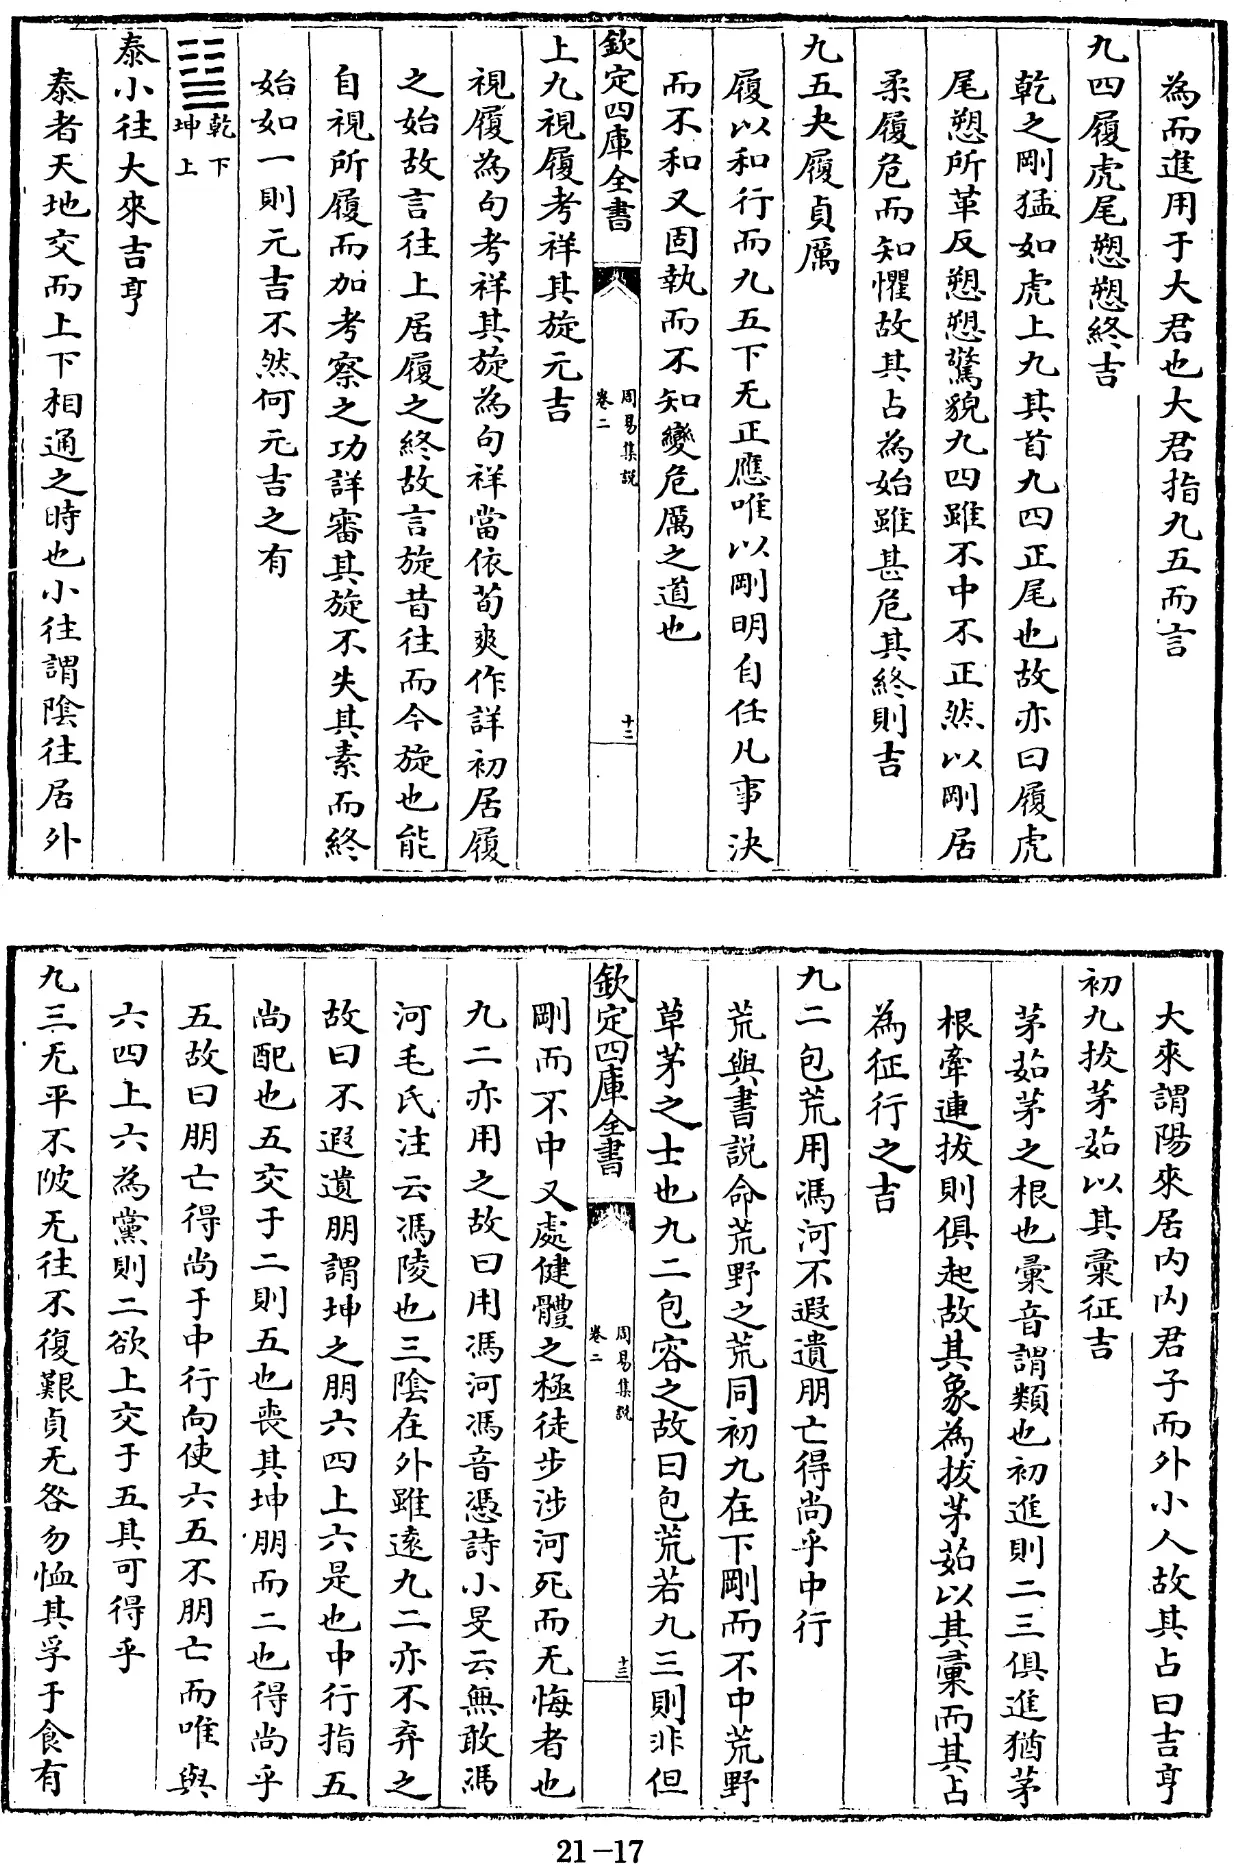 為而進用于大君也大君指九五而言
九四履虎尾愬愬終吉
乾之剛猛如虎上九其首九四正尾也故亦曰履虎
尾愬所革反愬愬驚貌九四雖不中不正然以剛居
柔履危而知懼故其占為始雖甚危其終則吉
九五夬履貞厲
履以和行而九五下无正應唯以剛明自任凡事決
而不和又固執而不知變危厲之道也
欽定四庫全書
周易集說
卷二
十二
上九視履考祥其旋元吉
視履為句考祥其旋為句祥當依荀爽作詳初居履
之始故言往上居履之終故言旋昔往而今旋也能
自視所履而加考察之功詳審其旋不失其素而終
始如一則元吉不然何元吉之有
乾下
坤上
泰小往大來吉亨
泰者天地交而上下相通之時也小往謂陰往居外
大來謂陽來居内内君子而外小人故其占曰吉亨
初九拔茅茹以其彙征吉
茅茹茅之根也彙音謂類也初進則二三俱進猶茅
根牽連拔則俱起故其象為拔茅茹以其彙而其占
為征行之吉
九二包荒用馮河不遐遺朋亡得尚乎中行
荒與書説命荒野之荒同初九在下剛而不中荒野
草茅之士也九二包容之故曰包荒若九三則非但
欽定四庫全書
周易集說
卷二
十三
剛而不中又處健體之極徒步涉河死而无悔者也
九二亦用之故曰用馮河馮音憑詩小旻云無敢馮
河毛氏注云馮陵也三陰在外雖遠九二亦不弃之
故曰不遐遺朋謂坤之朋六四上六是也中行指五
尚配也五交于二則五也喪其坤朋而二也得尚乎
五故曰朋亡得尚于中行向使六五不朋亡而唯與
六四上六為黨則二欲上交于五其可得乎
九三无平不陂无往不復艱貞无咎勿恤其孚于食有
21-17